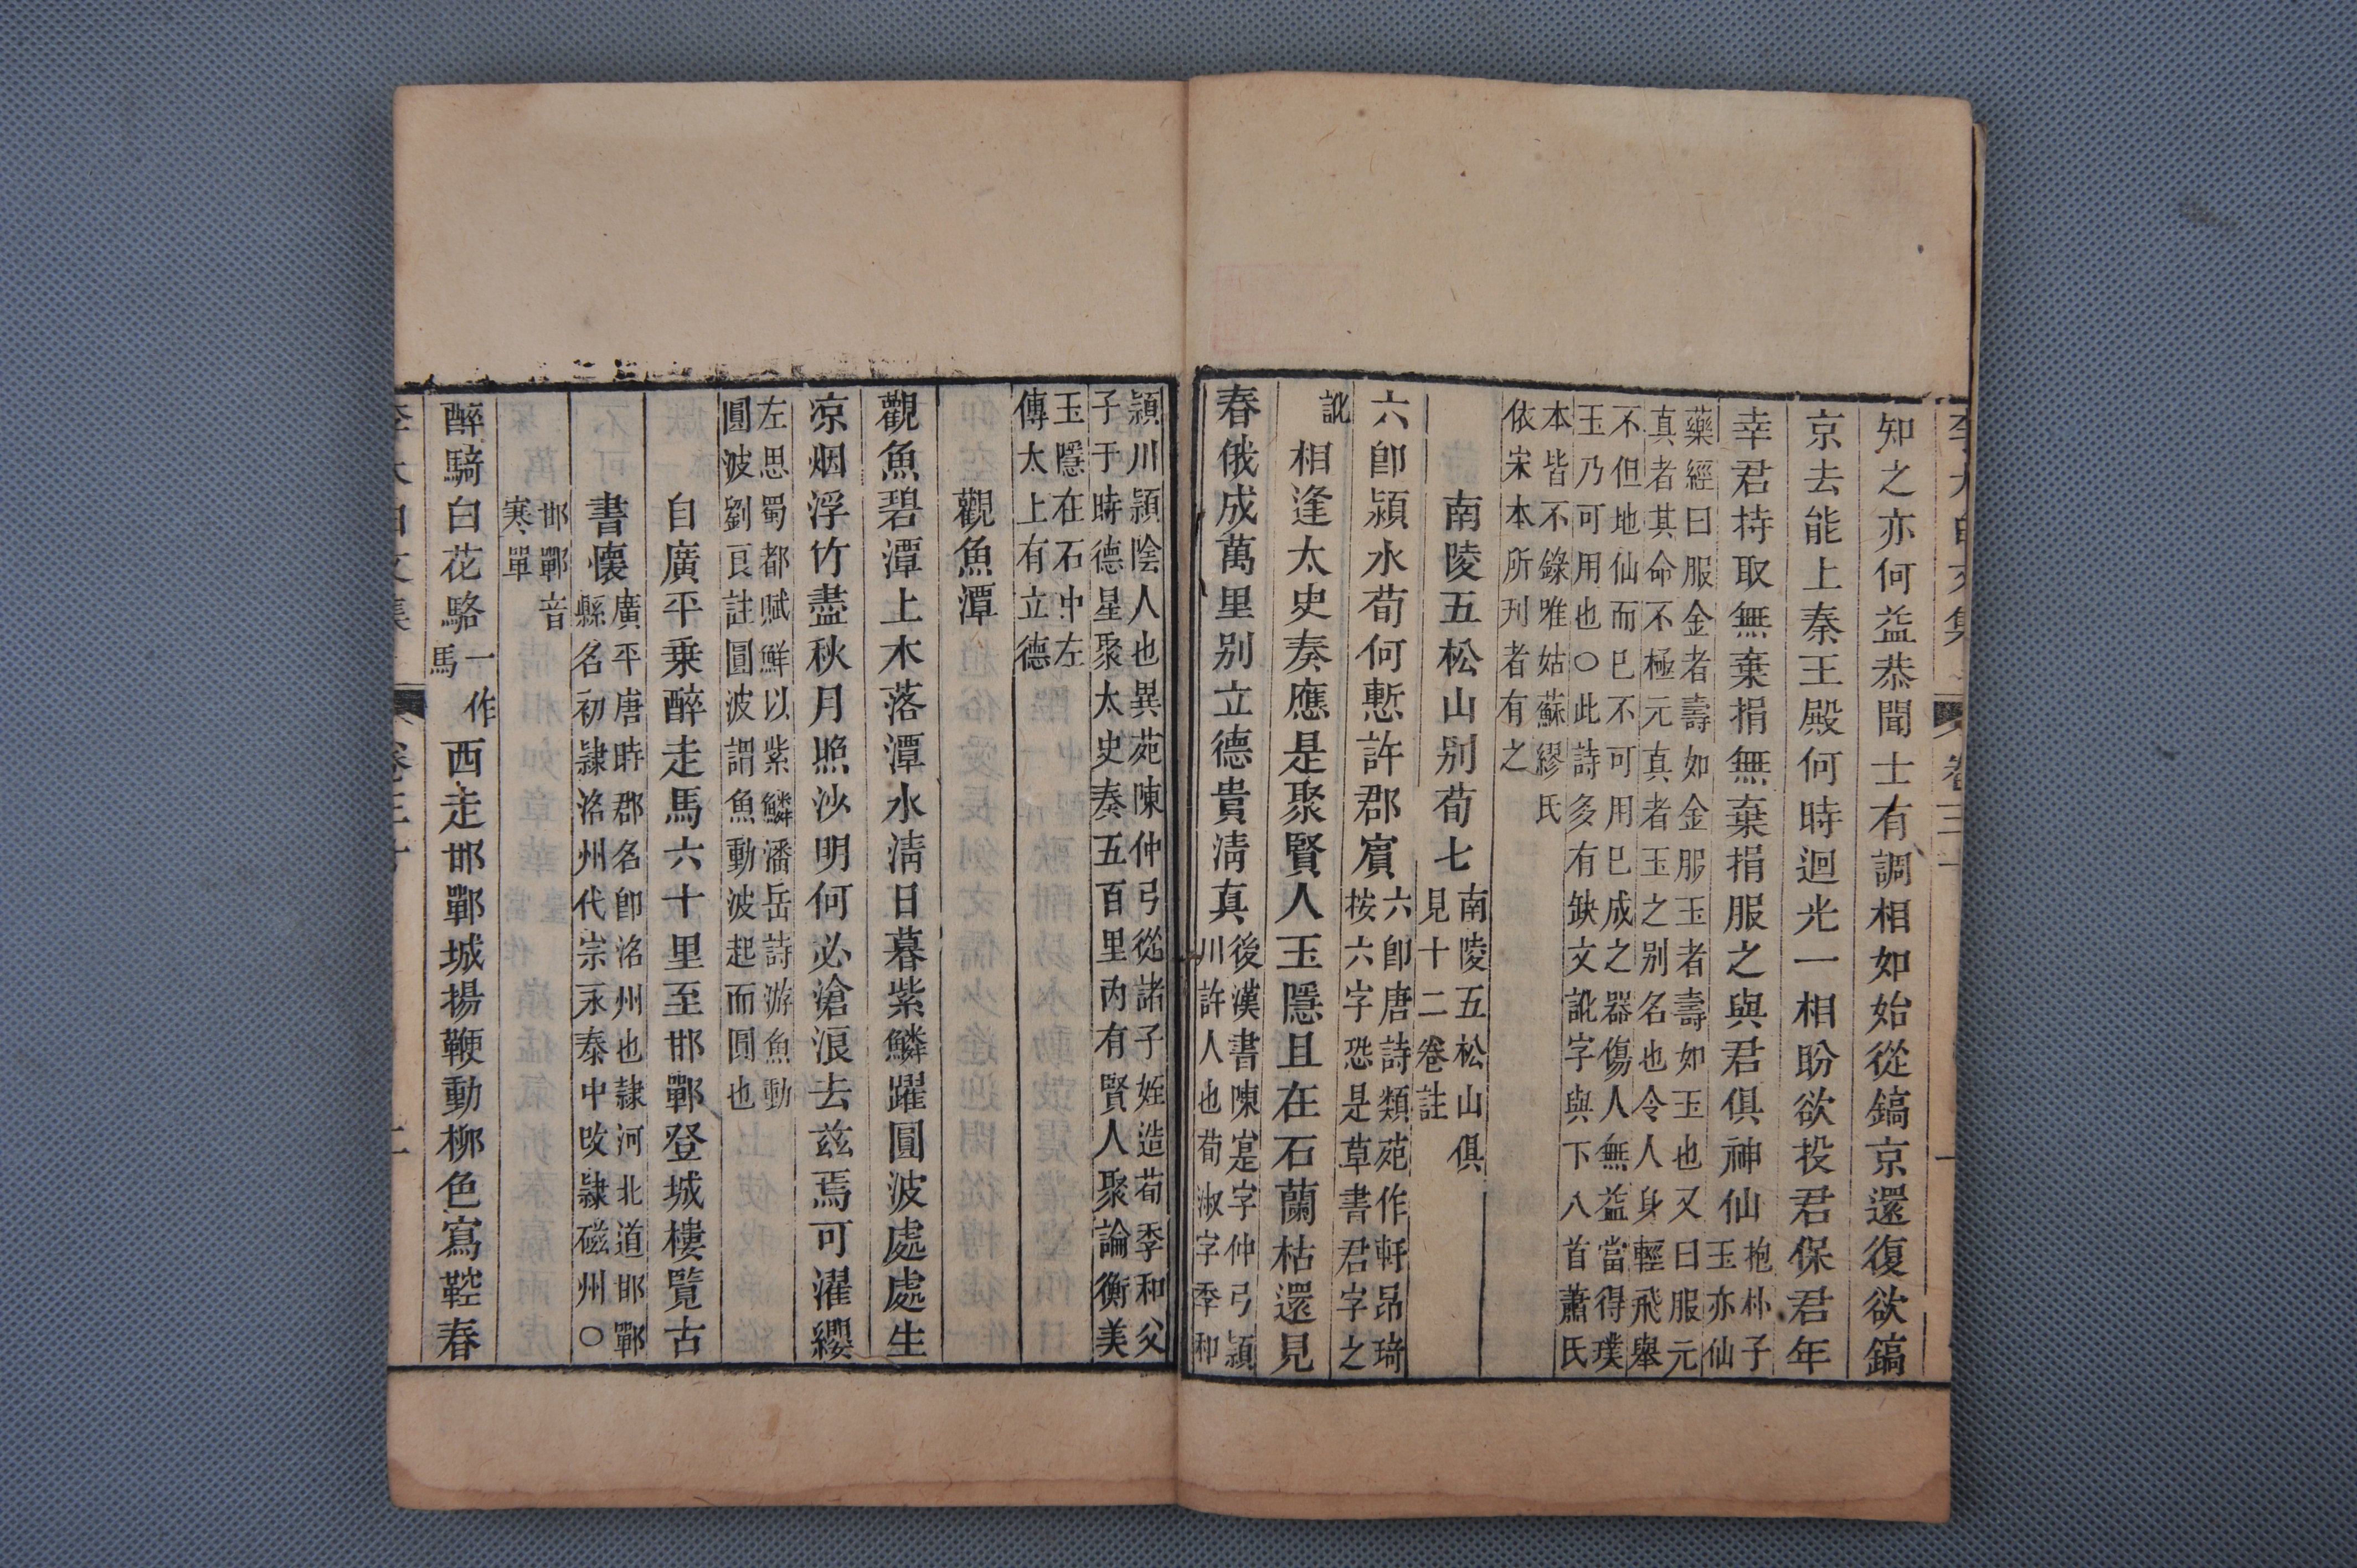 知之亦何益恭聞士有調相如始從鎬京還復欲鎬
京去能上秦王殿何時迴光一相盼欲投君保君年
幸君持取無棄捐無棄捐服之與君俱神仙
抱朴子
玉亦仙
藥經曰服金者壽如金服玉者壽如玉也又曰服元
真者其命不極元真者玉之别名也令人身輕飛舉
不但地仙而已不可用已成之器傷人無益當得璞
玉乃可用也○此詩多有缺文訛字與下八首蕭氏
本皆不錄唯姑蘇繆氏
依宋本所刋者有之
南陵五松山别荀七
南陵五松山俱
見十二卷註
六卽潁水荀何慙許郡賔
六卽唐詩類苑作軒昂琦
按六字恐是草書君字之
訛
相逢太史奏應是聚賢人玉隱且在石蘭枯還見
春俄成萬里别立德貴淸真
後漢書陳寔字仲弓潁
川許人也荀淑字季和
潁川潁陰人也異苑陳仲弓從諸子姪造荀季和父
子于時德星聚太史奏五百里内有賢人聚論衡美
玉隱在石中左
傳太上有立德
觀魚潭
觀魚碧潭上木落潭水淸日暮紫鱗躍圓波處處生
凉烟浮竹盡秋月照沙明何必滄浪去兹焉可濯纓
左思蜀都賦鮮以紫鱗潘岳詩游魚動
圓波劉良註圓波謂魚動波起而圓也
自廣平乗醉走馬六十里至邯鄲登城樓覽古
書懷
廣平唐時郡名卽洺州也隷河北道邯鄲
縣名初隷洺州代宗永泰中改隷磁州○
邯鄲音
寒單
醉騎白花駱
一作
馬
西走邯鄲城揚鞭動柳色寫鞚春
李太白文集
卷三十